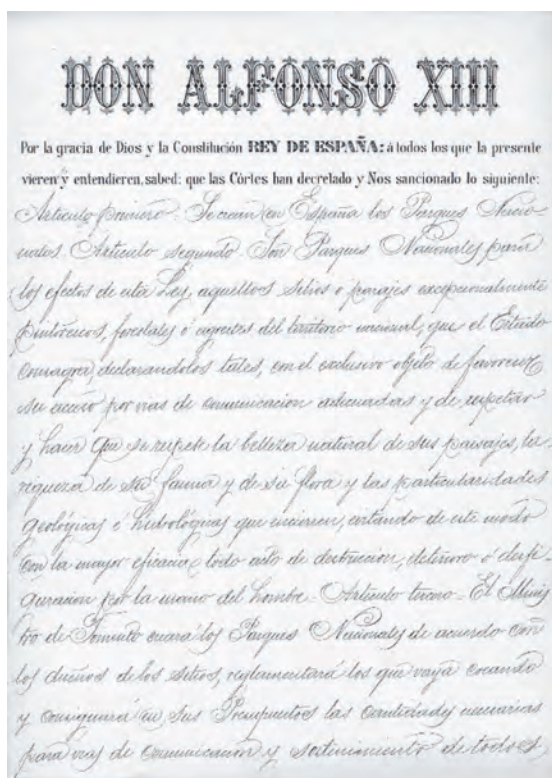 DON ALFONSO XIII
Por la gracia de Dios y la Constitución REY DE ESPAÑA: á todos los que la presente
vieren y entendieren, sabed: que las Córtes han decretado y Nos sancionado lo siguiente:
Artículo primero. Se crean en España los Parques Nacio-
nales. Artículo segundo. Son Parques Nacionales para
los efectos de esta Ley, aquellos sitios ó parajes excepcionalmente
pintorescos, forestales ó agrestes del territorio nacional, que el Estado
consagra, declarandolos tales, con el exclusivo objeto de favorecer
su acceso por vias de comunicacion adecuadas y de respetar
y hacer que se respete la belleza natural de sus paisajes, la
riqueza de su fauna y de su flora y las particularidades
geológicas é hidrológicas que encierren, evitando de este modo
con la mayor eficacia todo acto de destruccion, deterioro ó desfi-
guracion por la mano del hombre. Artículo tercero. El Minis
tro de Fomento creará los Parques Nacionales de acuerdo con
los dueños de los sitios, reglamentará los que vaya creando
y consignará en sus Presupuestos las cantidades necesarias
para vias de comunicacion y sostenimiento de todos